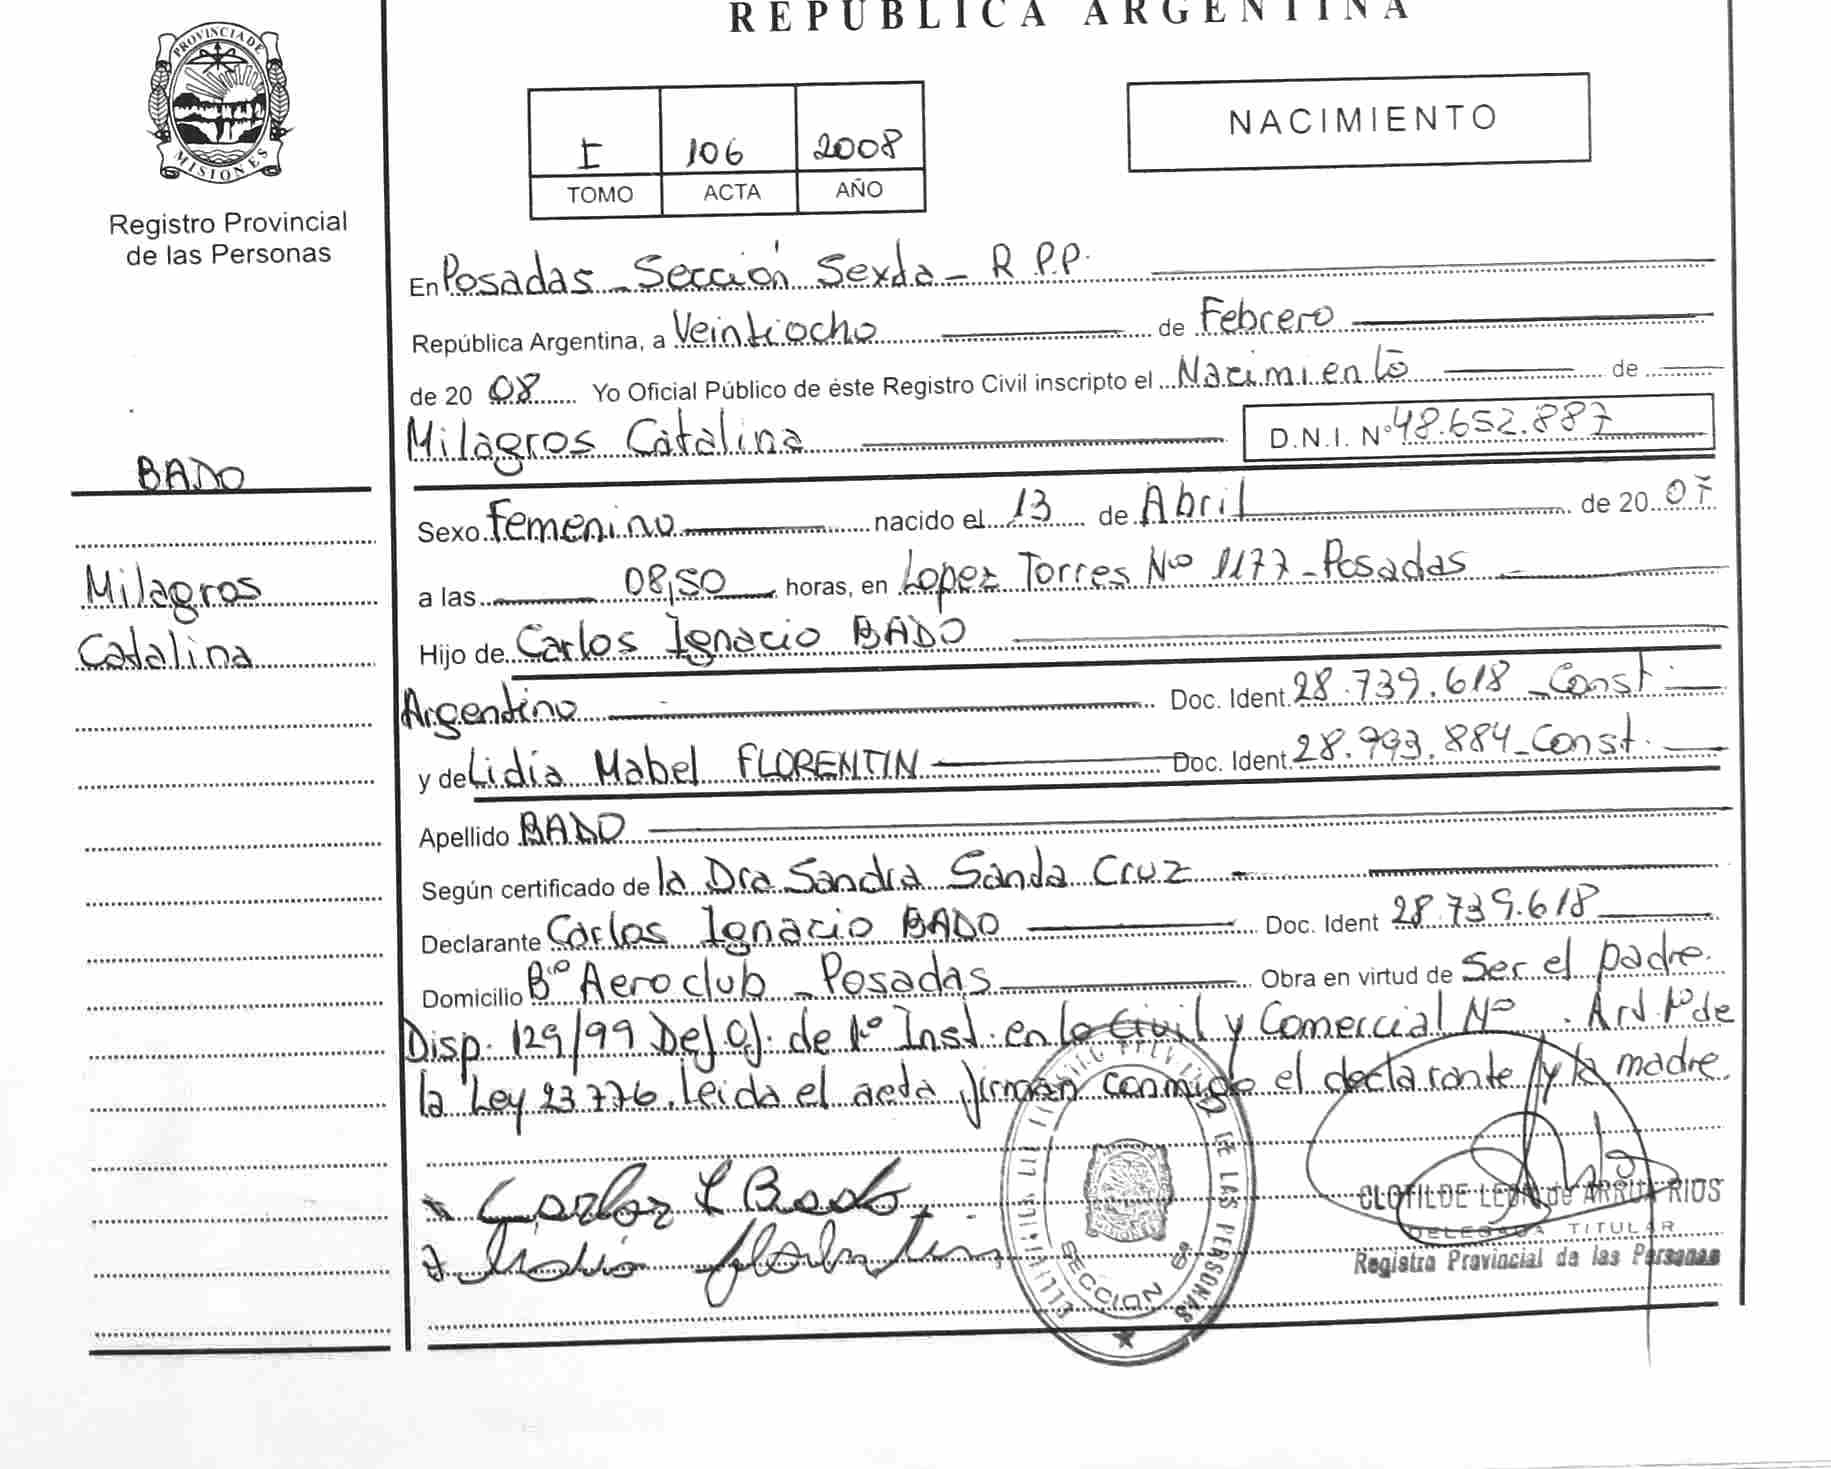 REPÚBLICA ARGENTINA
PROVINCIA DE
MISIONES
Registro Provincial
de las Personas
I 106 2008
TOMO ACTA AÑO
NACIMIENTO
En Posadas - Sección Sexta - R P.P.
República Argentina, a Veintiocho de Febrero
de 20 08 Yo Oficial Público de éste Registro Civil inscripto el Nacimiento de
Milagros Catalina D.N.I. Nº 48.652.887
BADO
Milagros
Catalina
Sexo Femenino nacido el 13 de Abril de 20 07
a las 08,50 horas, en Lopez Torres Nº 1177 - Posadas
Hijo de Carlos Ignacio BADO
Argentino Doc. Ident. 28.739.618 - Const.
y de Lidia Mabel FLORENTIN Doc. Ident. 28.993.884 - Const.
Apellido BADO
Según certificado de la Dra Sandra Santa Cruz -
Declarante Carlos Ignacio BADO Doc. Ident 28.739.618
Domicilio Bº Aeroclub - Posadas Obra en virtud de Ser el padre.
Disp. 129/99 Def. Of. de 1º Inst. en lo Civil y Comercial Nº . Art 1º de
la Ley 23776. Leida el acta firman conmigo el declarante y la madre.
Carlos I Bado
Lidia Florentin
DE LAS PERSONAS
SECCION 6ª
CLOTILDE LEON de ARRUA RIOS
DELEGADA TITULAR
Registro Provincial de las Personas